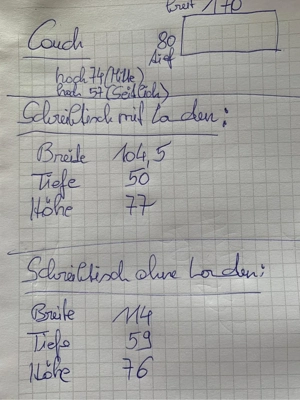 breit 170
Couch 80
tief
hoch 74 (Mitte)
hoch 57 (Seitlich)
Schreibtisch mit Laden:
Breite 104,5
Tiefe 50
Höhe 77
Schreibtisch ohne Laden:
Breite 114
Tiefe 59
Höhe 76